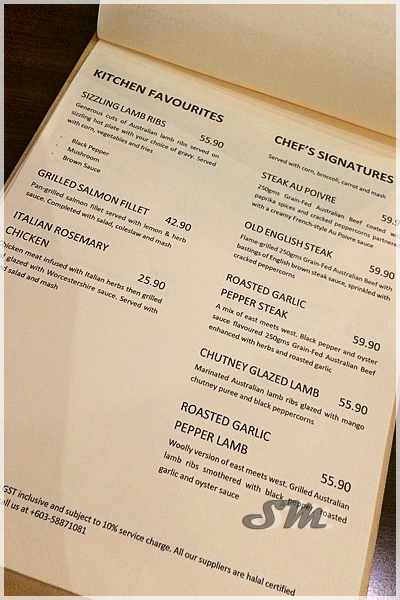 KITCHEN FAVOURITES
SIZZLING LAMB RIBS
55.90
Generous cuts of Australian lamb ribs served on
sizzling hot plate with your choice of gravy. Served
with corn, vegetables and fries
- Black Pepper
- Mushroom
- Brown Sauce
GRILLED SALMON FILLET
42.90
Pan-grilled salmon fillet served with lemon & herb
sauce. Completed with salad, coleslaw and mash
ITALIAN ROSEMARY
CHICKEN
25.90
chicken meat infused with Italian herbs then grilled
glazed with Worcestershire sauce. Served with
salad and mash
CHEF'S SIGNATURES
Served with corn, broccoli, carrot and mash
STEAK AU POIVRE
59.9
250gms Grain-Fed Australian Beef coated w
paprika spices and cracked peppercorns partnere
with a creamy French-style Au Poivre sauce
OLD ENGLISH STEAK
59.90
Flame-grilled 250gms Grain-Fed Australian Beef with
bastings of English brown steak sauce, sprinkled with
cracked peppercorns
ROASTED GARLIC
PEPPER STEAK
59.90
A mix of east meets west. Black pepper and oyster
sauce flavoured 250gms Grain-Fed Australian Beef
enhanced with herbs and roasted garlic
CHUTNEY GLAZED LAMB
55.90
Marinated Australian lamb ribs glazed with mango
chutney puree and black peppercorns
ROASTED GARLIC
PEPPER LAMB
55.90
Woolly version of east meets west. Grilled Australian
lamb ribs smothered with black pepper, roasted
garlic and oyster sauce
GST inclusive and subject to 10% service charge. All our suppliers are halal certified
call us at +603-58871081
SM